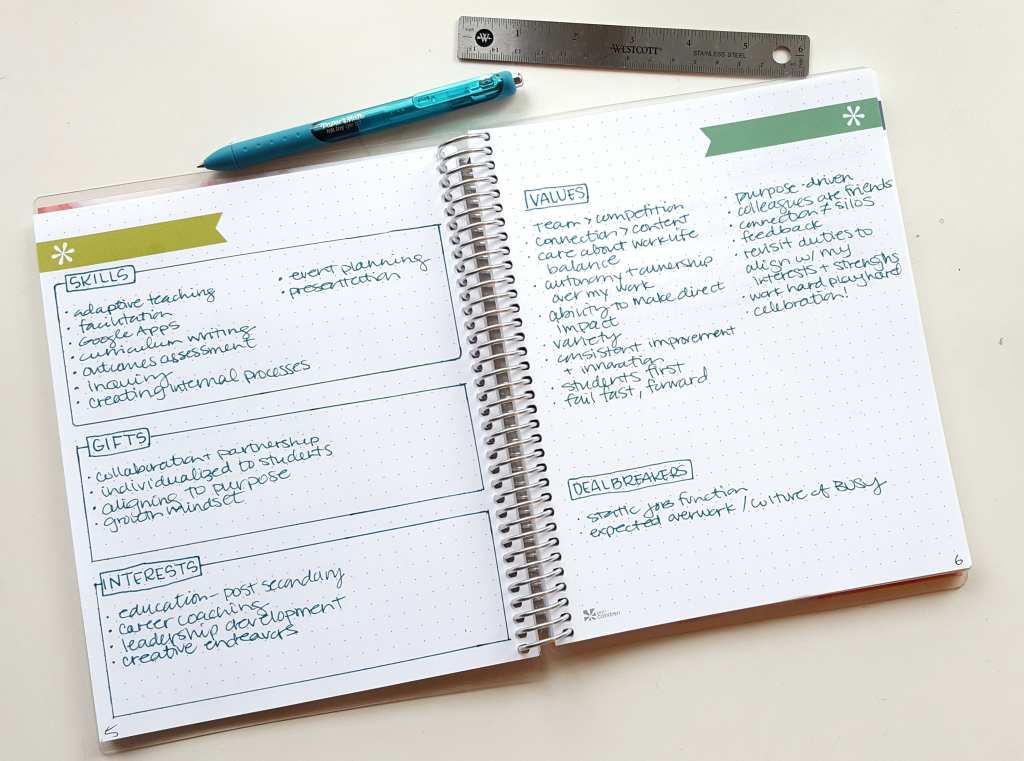 WESTCOTT
STAINLESS STEEL
1 2 3 4 5 6
PaperMate
SKILLS
· adaptive teaching
· facilitation
· Google Apps
· curriculum writing
· outcomes assessment
· inquiry
· creating internal processes
· event planning
· presentation
GIFTS
· collaboration + partnership
· individualized to students
· aligning to purpose
· growth mindset
INTERESTS
· education - post secondary
· career coaching
· leadership development
· creative endeavors
5
VALUES
· Team > competition
· connection > content
· care about work life
balance
· autonomy + ownership
over my work
· ability to make direct
impact
· variety
· consistent improvement
+ innovation
· students first
· fail fast, forward
· purpose-driven
· colleagues are friends
· connection ≠ silos
· feedback
· revisit duties to
align w/ my
interests + strengths
· work hard play hard
· celebration!
DEALBREAKERS
· static job function
· expected overwork / culture of BUSY
erin condren
6